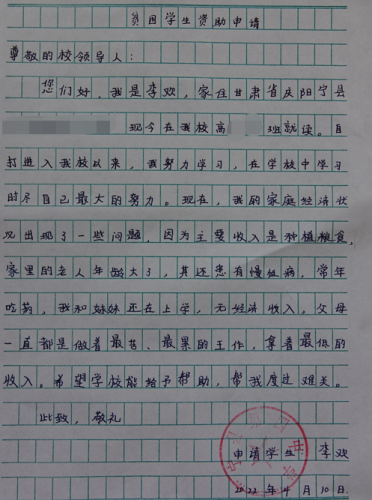 贫困学生资助申请
尊敬的校领导人：
您们好，我是李欢，家住甘肃省庆阳宁县
现今在我校高 班就读。自
打进入我校以来，我努力学习，在学校中学习
时尽自己最大的努力。现在，我的家庭经济状
况出现了一些问题，因为主要收入是种植粮食，
家里的老人年龄大了，其还患有慢性病，常年
吃药，我和妹妹还在上学，无经济收入。父母
一直都是做着最苦、最累的工作，拿着最低的
收入。希望学校能给予帮助，帮我度过难关。
此致，敬礼
申请学生 李欢
2022年4月10日